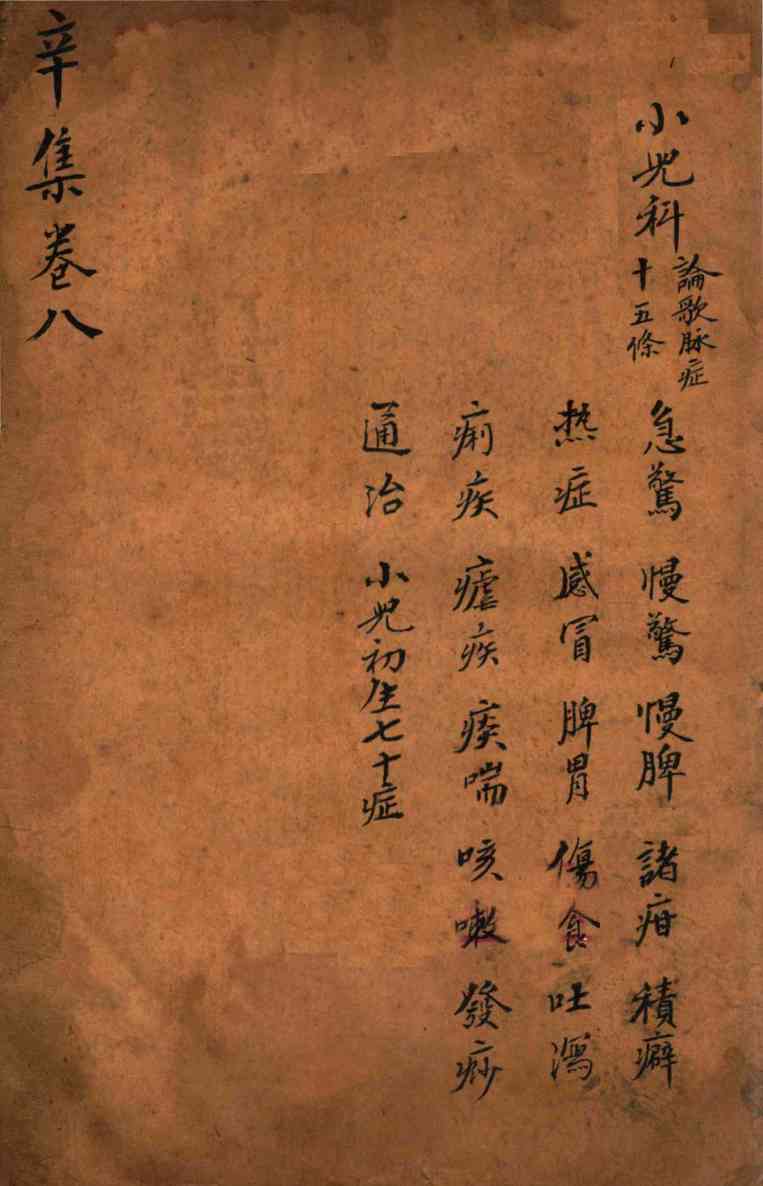 小兒科
論歌脉症
十五條
急驚 慢驚 慢脾 諸疳 積癖
热症 感冒 脾胃 傷食 吐瀉
痢疾 瘧疾 痰喘 咳嗽 發痧
通治 小兒初生七十症
辛集卷八